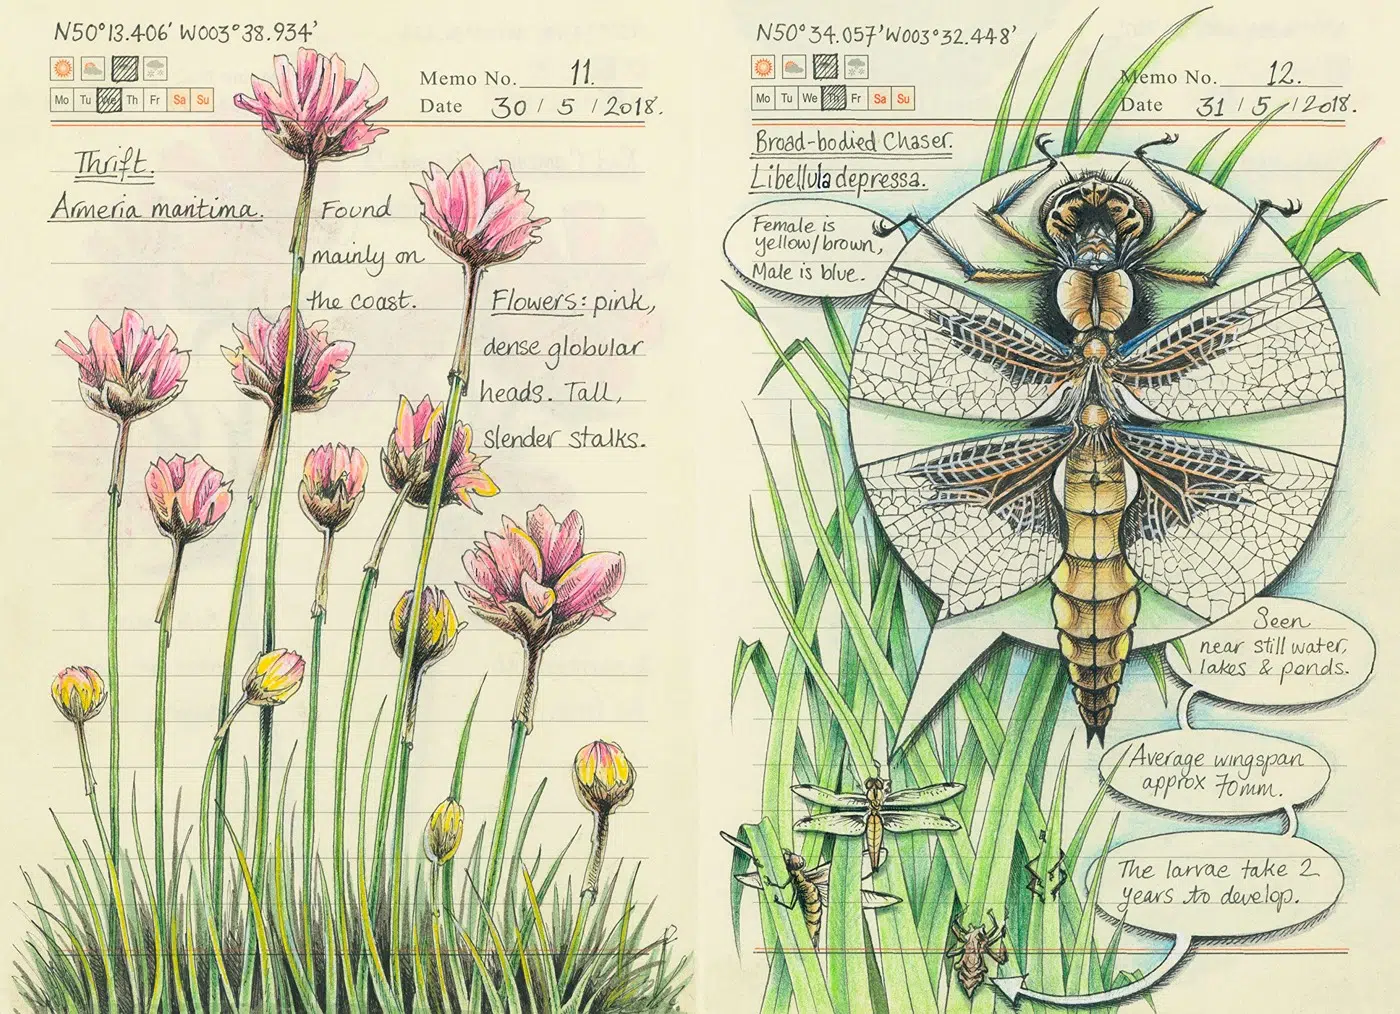 N50°13.406' W003°38.934'
Memo No. 11.
Mo Tu We Th Fr Sa Su
Date 30 / 5 / 2018.
Thrift.
Armeria maritima.
Found
mainly on
the coast.
Flowers: pink,
dense globular
heads. Tall,
slender stalks.
N50°34.057' W003°32.448'
Memo No. 12.
Mo Tu We Th Fr Sa Su
Date 31 / 5 / 2018.
Broad-bodied Chaser.
Libellula depressa.
Female is
yellow/brown,
Male is blue.
Seen
near still water,
lakes & ponds.
Average wingspan
approx 70mm.
The larvae take 2
years to develop.